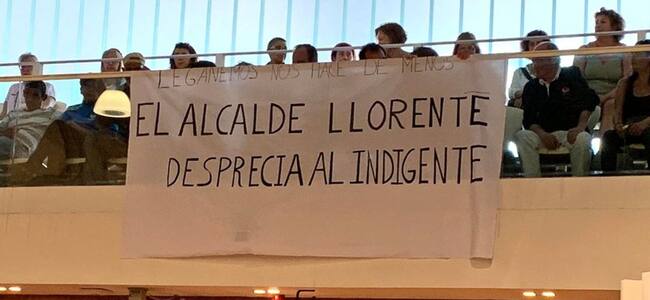 LEGANEMOS NOS HACE DE MENOS
EL ALCALDE LLORENTE
DESPRECIA AL INDIGENTE